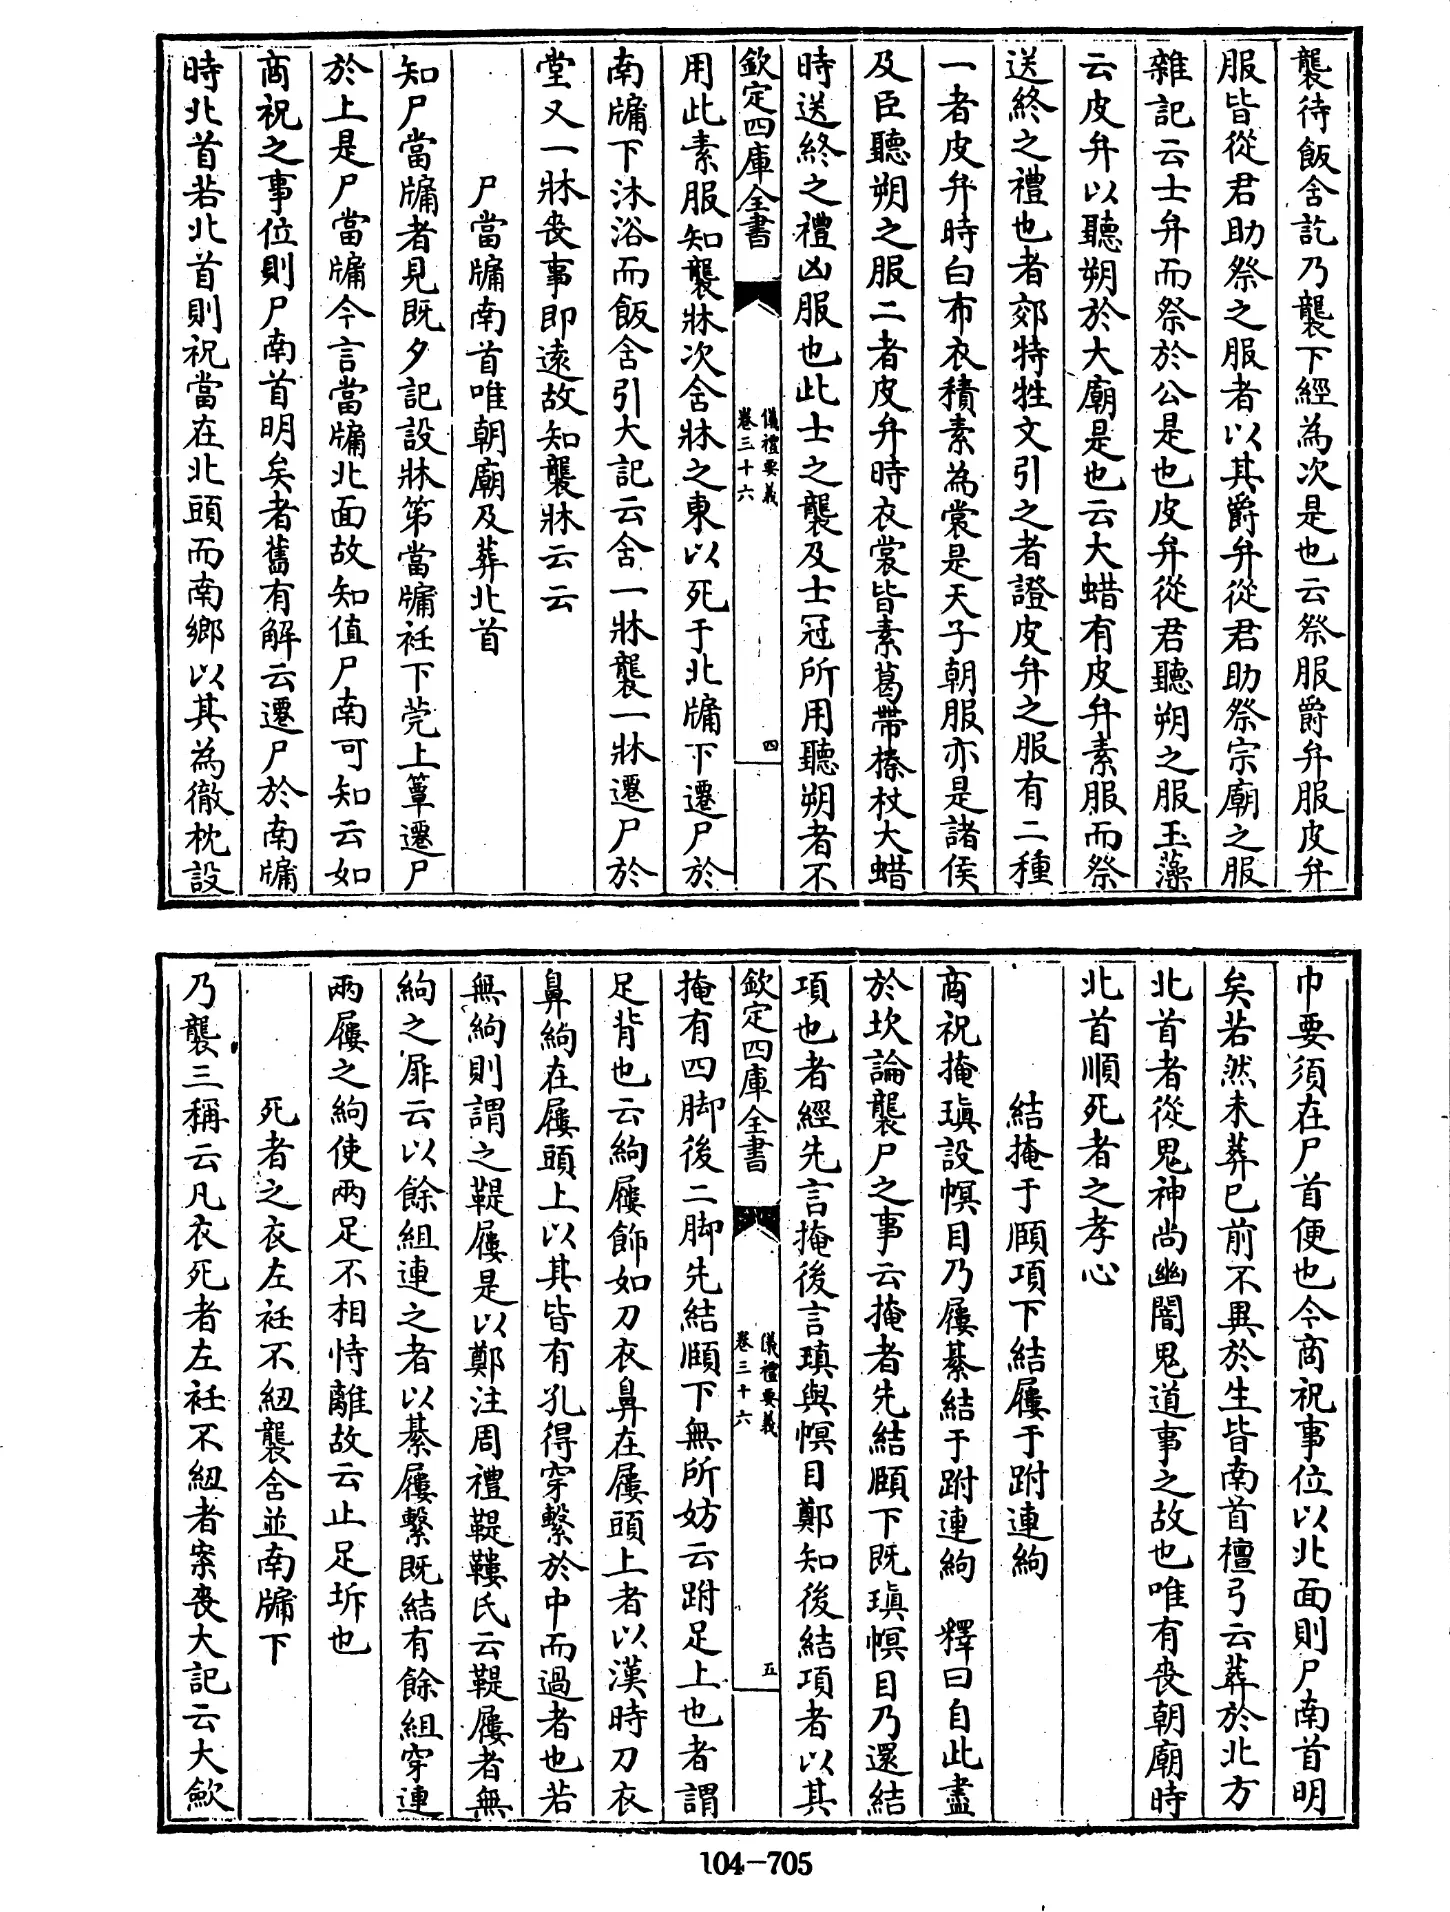 襲待飯含訖乃襲下經為次是也云祭服爵弁服皮弁
服皆從君助祭之服者以其爵弁從君助祭宗廟之服
雜記云士弁而祭於公是也皮弁從君聽朔之服玉藻
云皮弁以聽朔於大廟是也云大蜡有皮弁素服而祭
送終之禮也者郊特牲文引之者證皮弁之服有二種
一者皮弁時白布衣積素為裳是天子朝服亦是諸侯
及臣聽朔之服二者皮弁時衣裳皆素葛帶榛杖大蜡
時送終之禮凶服也此士之襲及士冠所用聽朔者不
欽定四庫全書
儀禮要義
卷三十六
四
用此素服知襲牀次含牀之東以死于北牖下遷尸於
南牖下沐浴而飯含引大記云含一牀襲一牀遷尸於
堂又一牀喪事即遠故知襲牀云云
尸當牖南首唯朝廟及葬北首
知尸當牖者見既夕記設牀笫當牖衽下莞上簟遷尸
於上是尸當牖今言當牖北面故知值尸南可知云如
商祝之事位則尸南首明矣者舊有解云遷尸於南牖
時北首若北首則祝當在北頭而南鄉以其為徹枕設
巾要須在尸首便也今商祝事位以北面則尸南首明
矣若然未葬已前不異於生皆南首檀弓云葬於北方
北首者從鬼神尚幽闇鬼道事之故也唯有喪朝廟時
北首順死者之孝心
結掩于頤項下結屨于跗連絇
商祝掩瑱設幎目乃屨綦結于跗連絇　釋曰自此盡
於坎論襲尸之事云掩者先結頤下既瑱幎目乃還結
項也者經先言掩後言瑱與幎目鄭知後結項者以其
欽定四庫全書
儀禮要義
卷三十六
五
掩有四脚後二脚先結頤下無所妨云跗足上也者謂
足背也云絇屨飾如刀衣鼻在屨頭上者以漢時刀衣
鼻絇在屨頭上以其皆有孔得穿繫於中而過者也若
無絇則謂之鞮屨是以鄭注周禮鞮鞻氏云鞮屨者無
絇之屝云以餘組連之者以綦屨繫既結有餘組穿連
兩屨之絇使兩足不相恃離故云止足坼也
死者之衣左衽不紐襲含並南牖下
乃襲三稱云凡衣死者左衽不紐者案喪大記云大歛
104-705